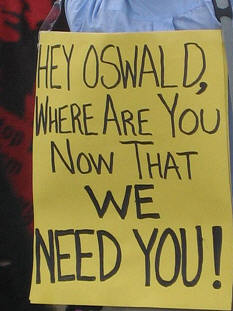 HEY OSWALD,
WHERE ARE YOU
NOW THAT
WE
NEED YOU!